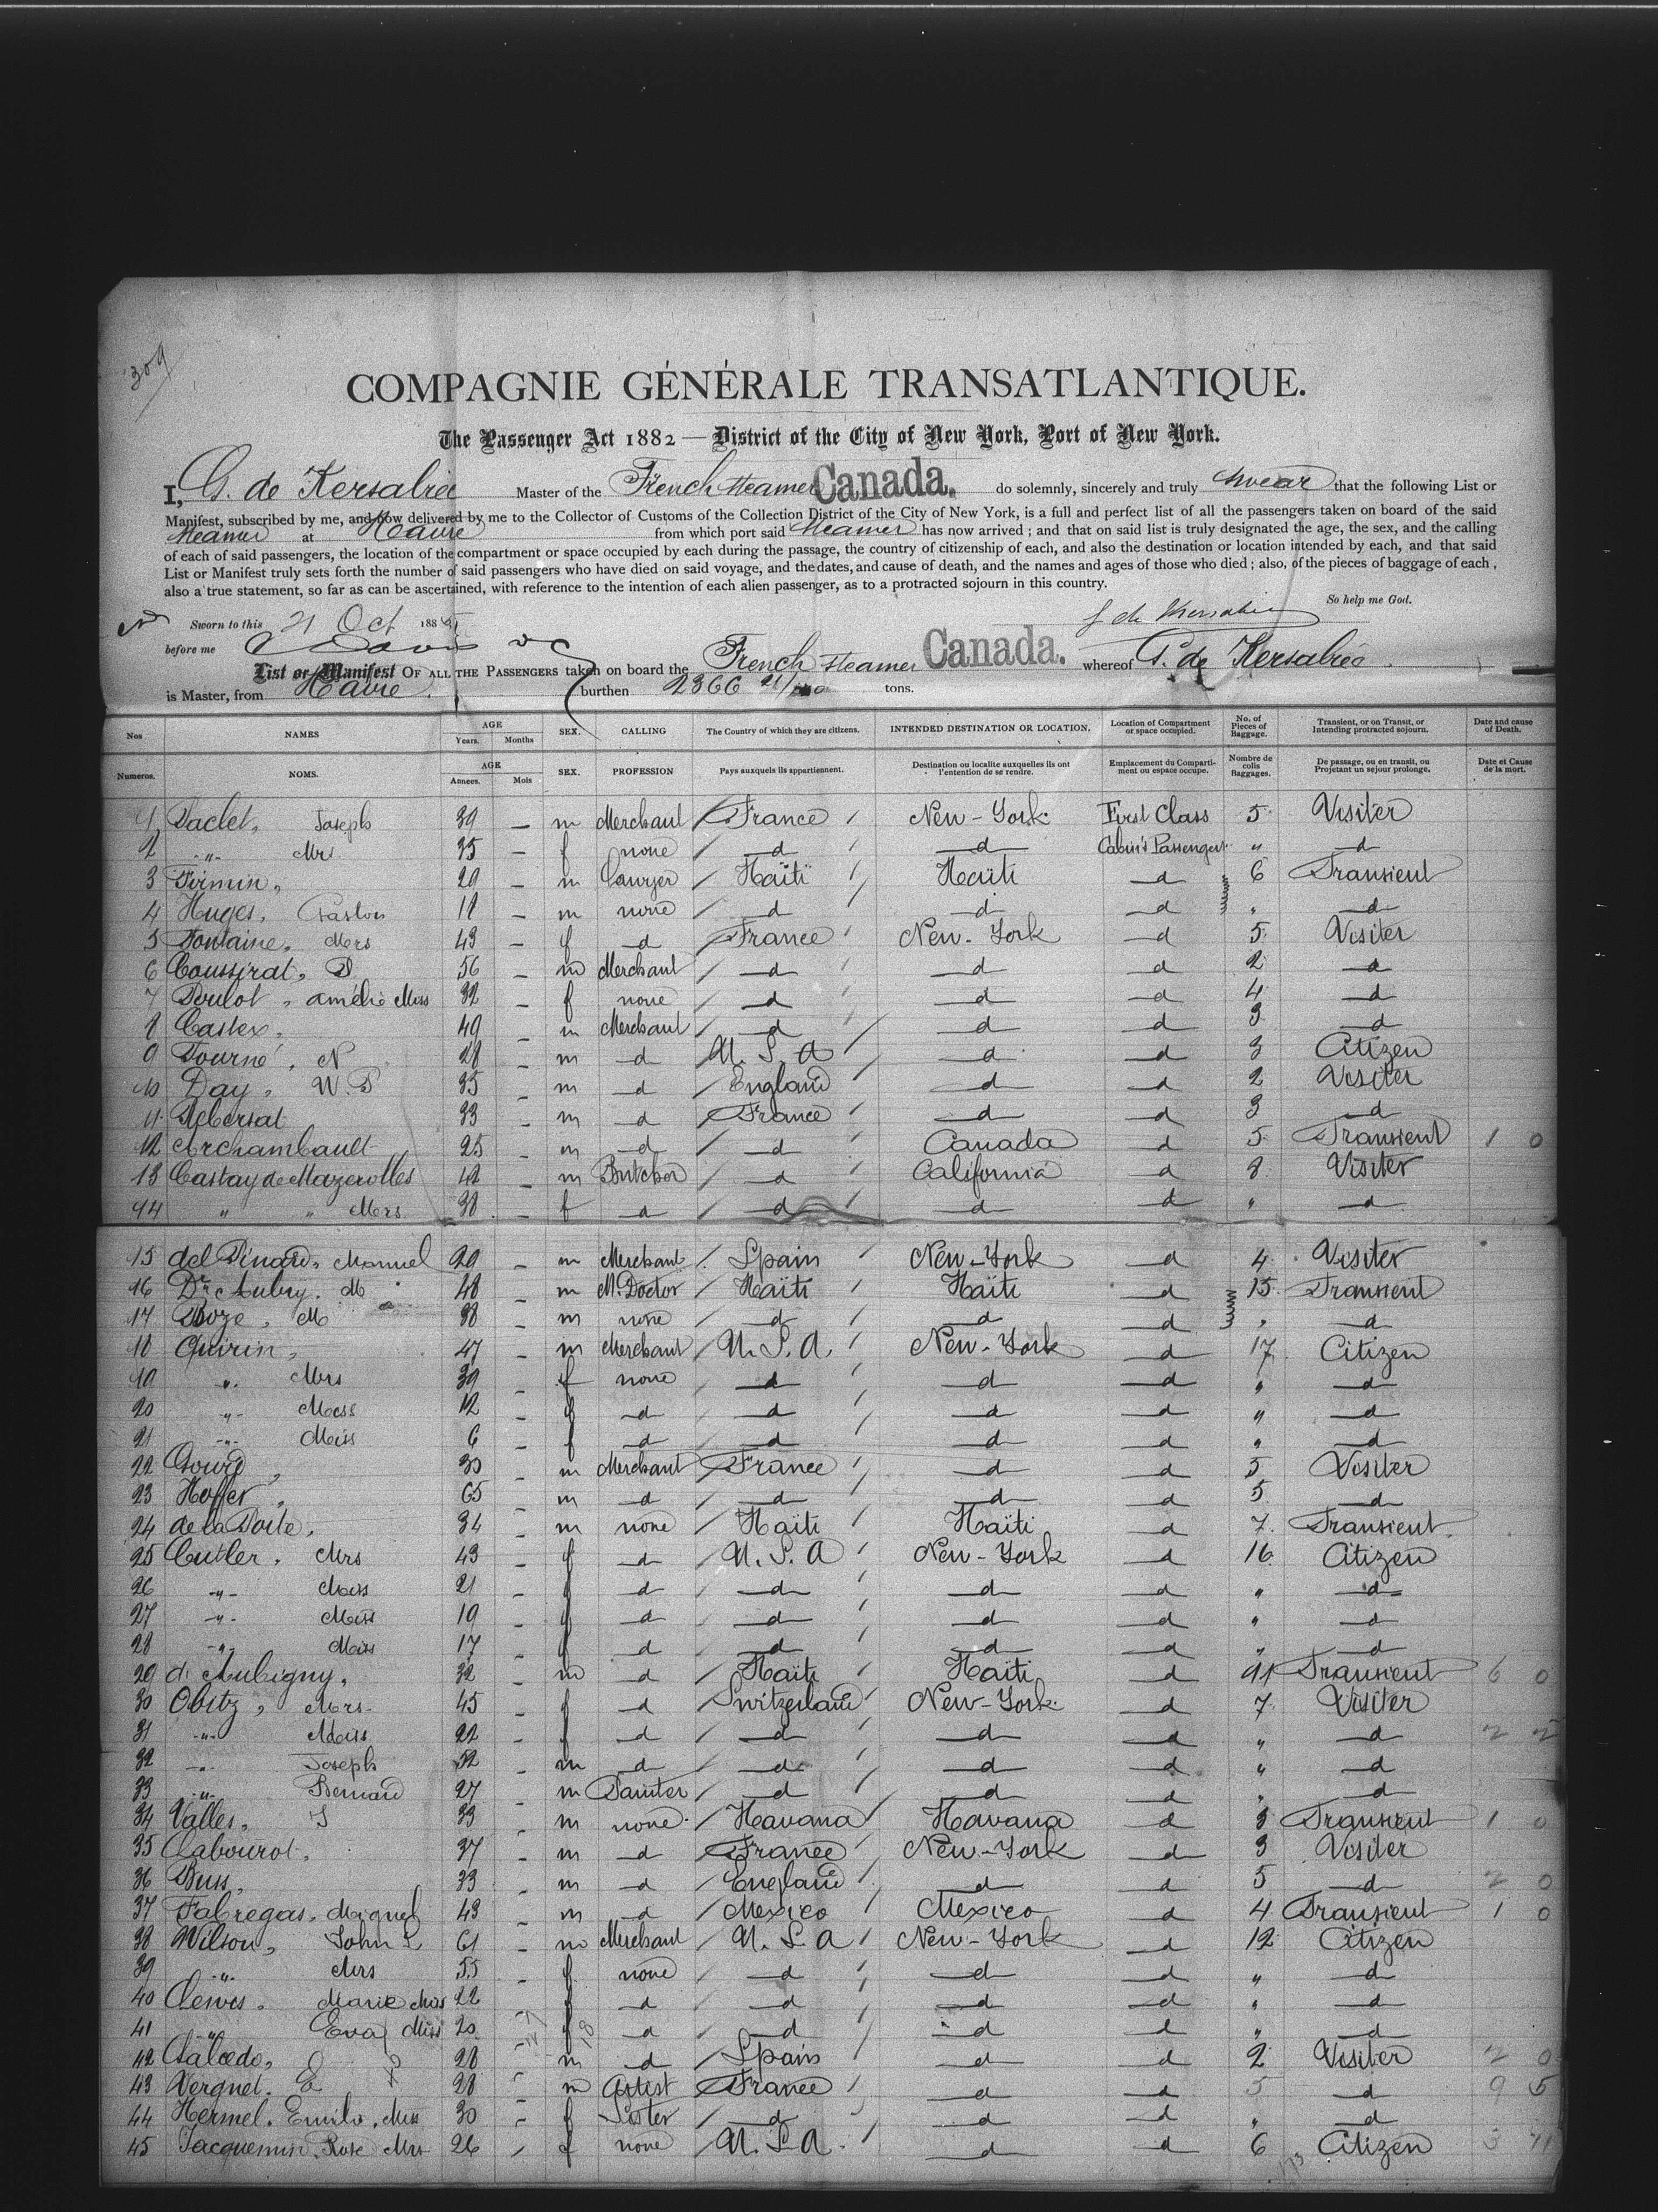 309
COMPAGNIE GÉNÉRALE TRANSATLANTIQUE.
The Passenger Act 1882 — District of the City of New York, Port of New York.
I, G. de Kersabiec Master of the French steamer Canada. do solemnly, sincerely and truly swear that the following List or
Manifest, subscribed by me, and now delivered by me to the Collector of Customs of the Collection District of the City of New York, is a full and perfect list of all the passengers taken on board of the said
steamer at Havre from which port said steamer has now arrived ; and that on said list is truly designated the age, the sex, and the calling
of each of said passengers, the location of the compartment or space occupied by each during the passage, the country of citizenship of each, and also the destination or location intended by each, and that said
List or Manifest truly sets forth the number of said passengers who have died on said voyage, and the dates, and cause of death, and the names and ages of those who died ; also, of the pieces of baggage of each ,
also a true statement, so far as can be ascertained, with reference to the intention of each alien passenger, as to a protracted sojourn in this country.
So help me God.
Sworn to this 21 Oct 188
G de Kersabiec
before me Davis
List or Manifest OF ALL THE PASSENGERS taken on board the French steamer Canada. whereof G. de Kersabiec
is Master, from Havre. burthen 2366 tons.
Nos NAMES AGE Years. Months SEX. CALLING The Country of which they are citizens. INTENDED DESTINATION OR LOCATION. Location of Compartment or space occupied. No. of Pieces of Baggage. Transient, or on Transit, or Intending protracted sojourn. Date and cause of Death.
Numeros. NOMS. AGE Annees. Mois SEX. PROFESSION Pays auxquels ils appartiennent. Destination ou localite auxquelles ils ont l'entention de se rendre. Emplacement du Compartiment ou espace occupe. Nombre de colis Baggages. De passage, ou en transit, ou Projetant un sejour prolonge. Date et Cause de la mort.
1 Paclet, Joseph 39 — m Merchant France New-York First Class 5 Visiter
2 -"- Mrs 35 — f none d d Cabin's Passengers " d
3 Firmin, 29 — m Lawyer Haïti Haïti d 6 Transient
4 Huges, Gaston 18 — m none d d d " d
5 Fontaine, Mers 43 — f d France New-York d 5 Visiter
6 Coussirat, D 56 — m Merchant d d d 2 d
7 Poulot, Amélie Miss 32 — f none d d d 4 d
8 Castex, 49 — m Merchant d d d 3 d
9 Tourné, N 28 — m d U.S.A d d 3 Citizen
10 Day, W.P 35 — m d England d d 2 Visiter
11 Abersat 33 — m d France d d 3 d
12 Archambault 25 — m d d Canada d 5 Transient 1 0
13 Castay de Mazerolles 42 — m Butcher d California d 8 Visiter
14 " " Mers. 38 — f d d d d " d
15 del Pinard, Manuel 29 — m Merchant Spain New-York d 4 Visiter
16 Dr Aubry. M 48 — m M. Doctor Haïti Haïti d 15 Transient
17 Boze, M 38 — m none d d d " d
18 Quirin, 47 — m Merchant U.S.A. New-York d 17 Citizen
19 " Mrs 39 — f none d d d " d
20 -"- Miss 12 — f d d d d " d
21 -"- Miss 6 — f d d d d " d
22 Gourd, 30 — m Merchant France d d 5 Visiter
23 Hoffer, 65 — m d d d d 5 d
24 de la Porte, 34 — m none Haïti Haïti d 7 Transient
25 Cutler, Mrs 43 — f d U.S.A New-York d 16 Citizen
26 -"- Miss 21 — f d d d d " d
27 -"- Miss 19 — f d d d d " d
28 -"- Miss 17 — f d d d d " d
29 d'Aubigny, 32 — m d Haïti Haïti d 11 Transient 6 0
30 Obitz, Mrs. 45 — f d Switzerland New-York d 7 Visiter
31 -"- Miss 22 — f d d d d " d 2 2
32 -"- Joseph 52 — m d d d d " d
33 -"- Bernard 27 — m Painter d d d " d
34 Valles, J 33 — m none Havana Havana d 3 Transient 1 0
35 Labourot. 37 — m d France New-York d 3 Visiter
36 Buss, 33 — m d England d d 5 d 2 0
37 Fabregas, Miguel 43 — m d Mexico Mexico d 4 Transient 1 0
38 Wilson, John L 61 — m Merchant U.S.A New-York d 12 Citizen
39 -"- Mrs 55 — f none d d d " d
40 Clewes, Marie Miss 22 f d d d d " d
41 -"- Eva Miss 20 f d d d d " d
42 Salcedo, E 28 m d Spain d d 2 Visiter 2 0
43 Vergnet. E 28 m Artist France d d 5 d 9 5
44 Hermel. Emilie, Miss 30 f Sister d d d " d
45 Jacquemin, Rose Mrs 26 f none U.S.A. d d 6 Citizen 3 11